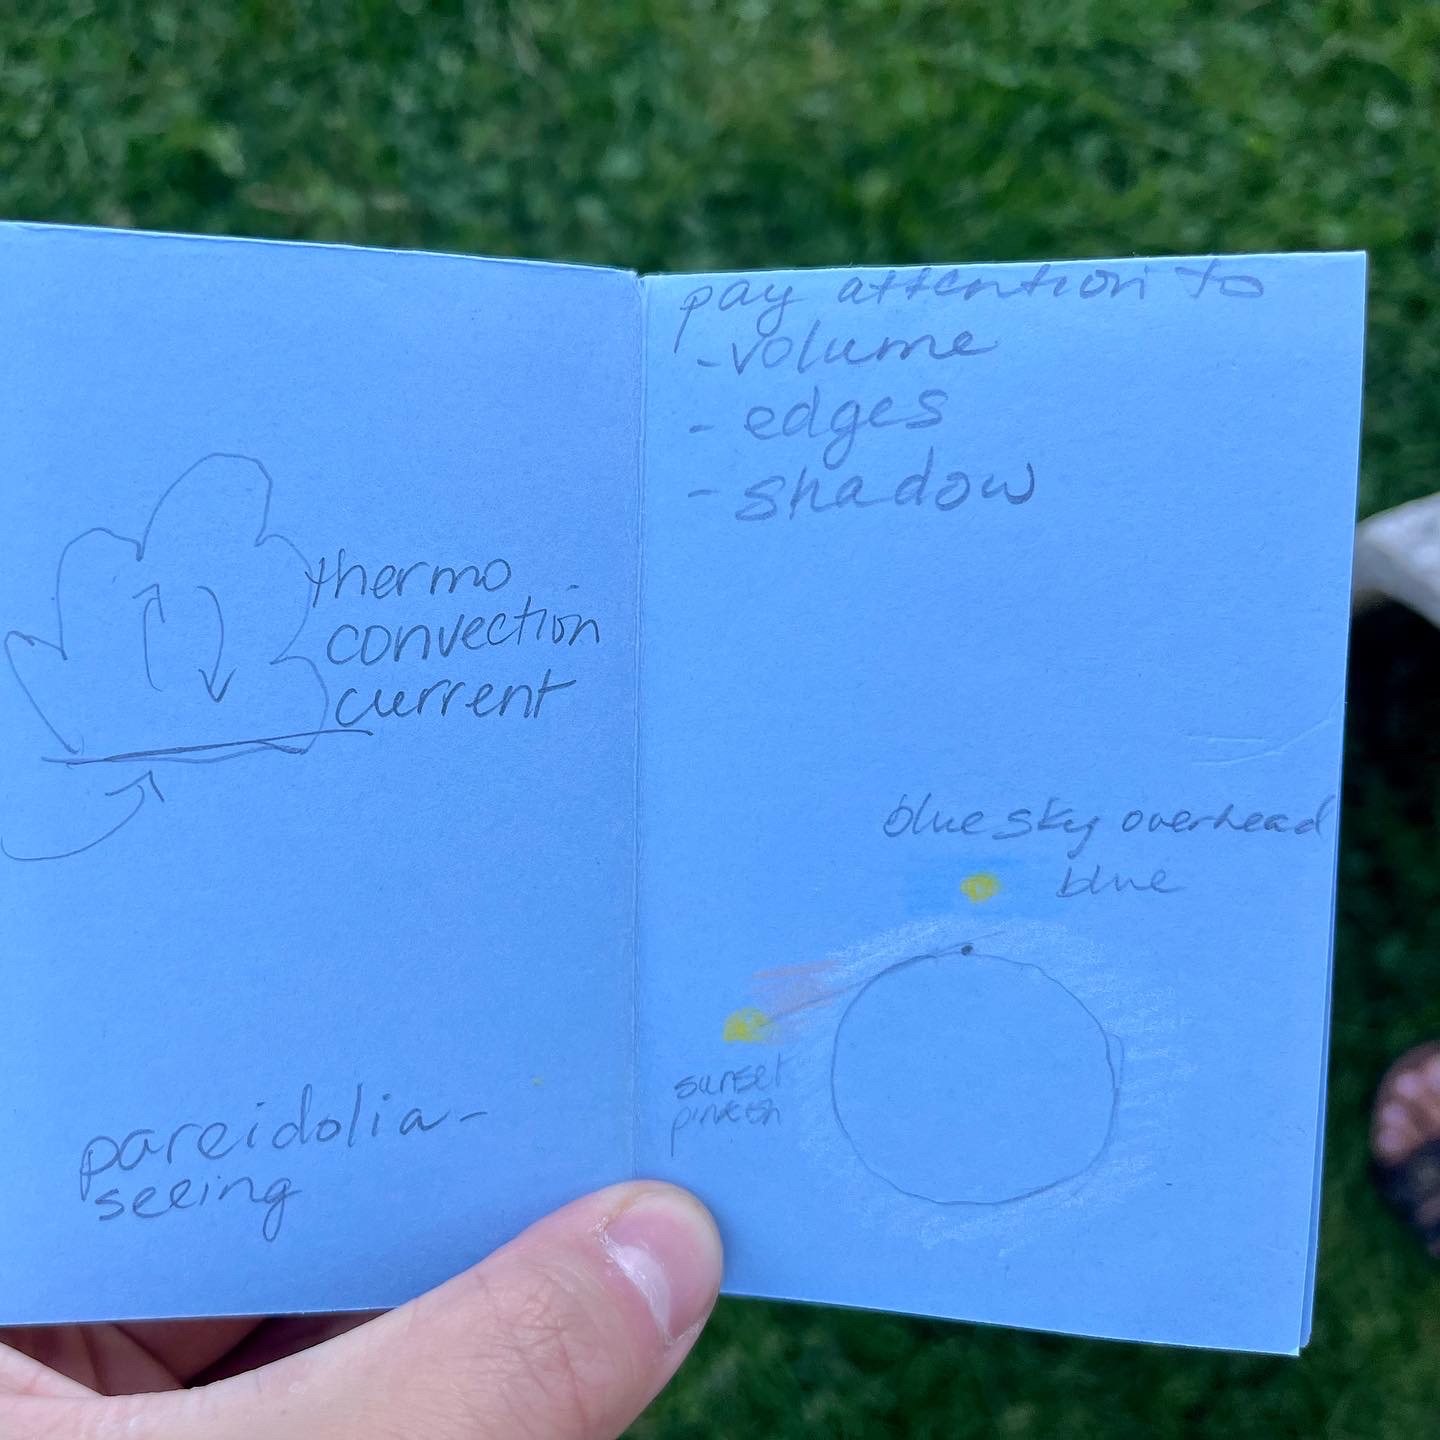 thermo
convection
current
pareidolia-
seeing
pay attention to
-volume
- edges
- shadow
blue sky overhead
blue
sunset